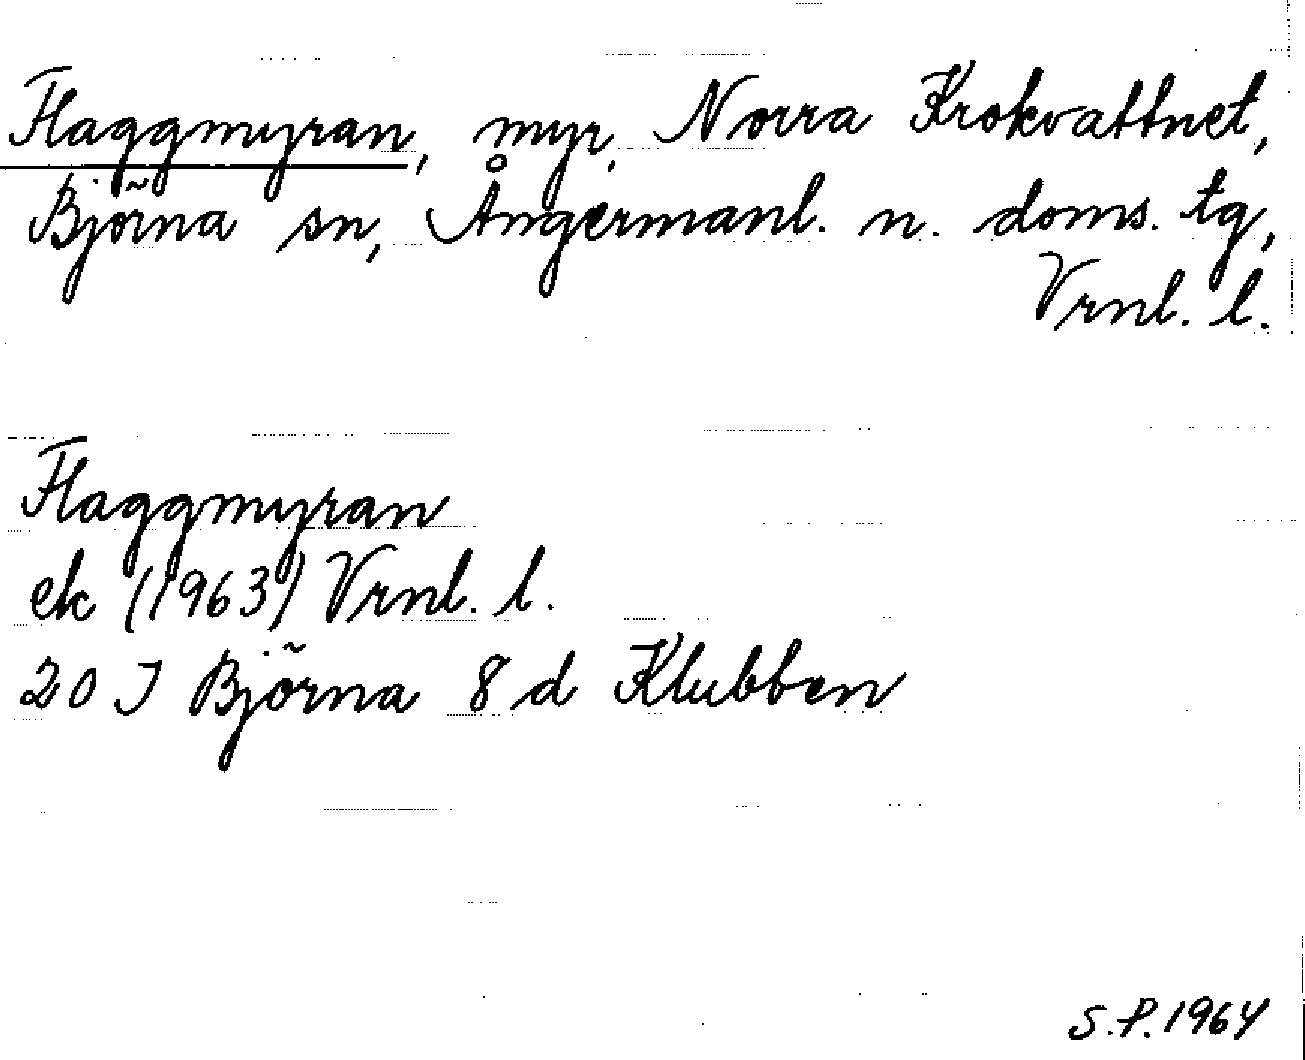 Flaggmyran, myr, Norra Krokvattnet,
Björna sn, Ångermanl. n. doms. tg,
Vrnl. l.
Flaggmyran
ek (1963) Vrnl. l.
20 I Björna 8 d Klubben
S.P. 1964